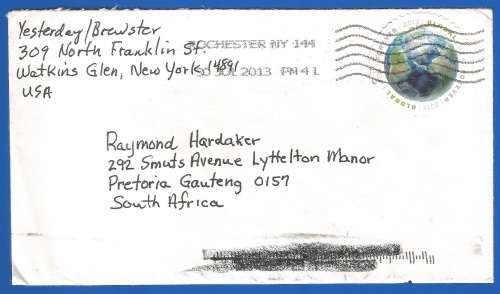 Yesterday/Brewster
309 North Franklin St.
Watkins Glen, New York 14891
USA
ROCHESTER NY 144
30 JUL 2013 PM 4 L
GLOBAL
FOREVER
2013
Raymond Hardaker
292 Smuts Avenue Lyttelton Manor
Pretoria Gauteng 0157
South Africa